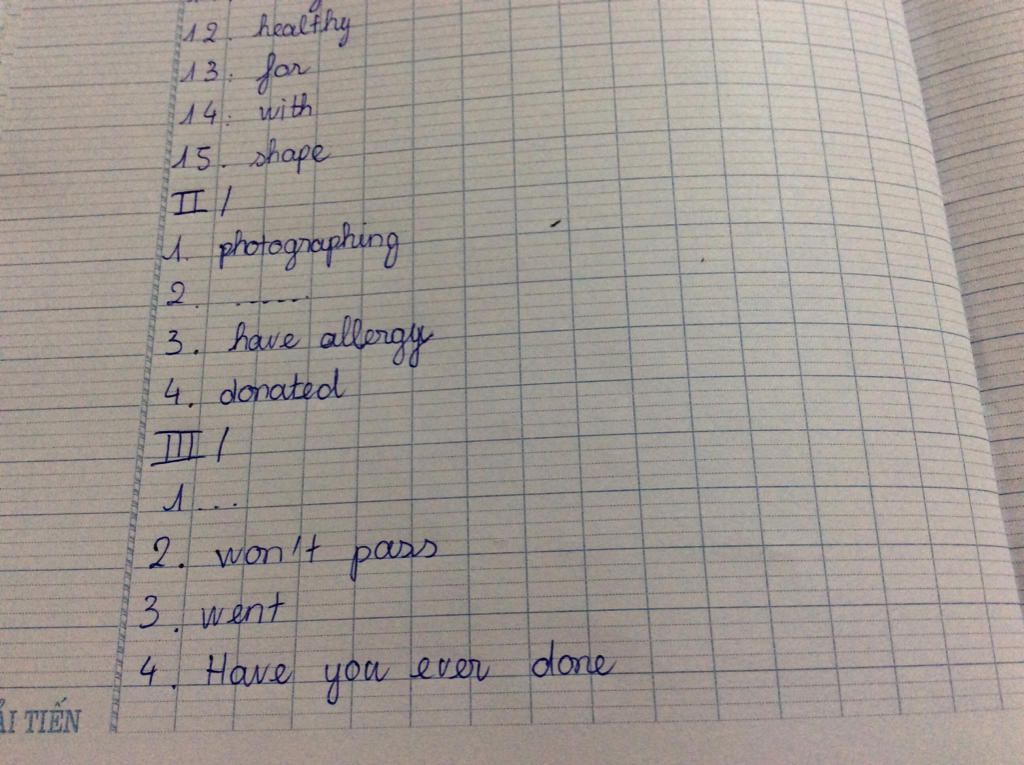 12. healthy
13. for
14. with
15. shape
II /
1. photographing
2. .......
3. have allergy
4. donated
III /
1...
2. won't pass
3. went
4. Have you ever done
ẢI TIẾN